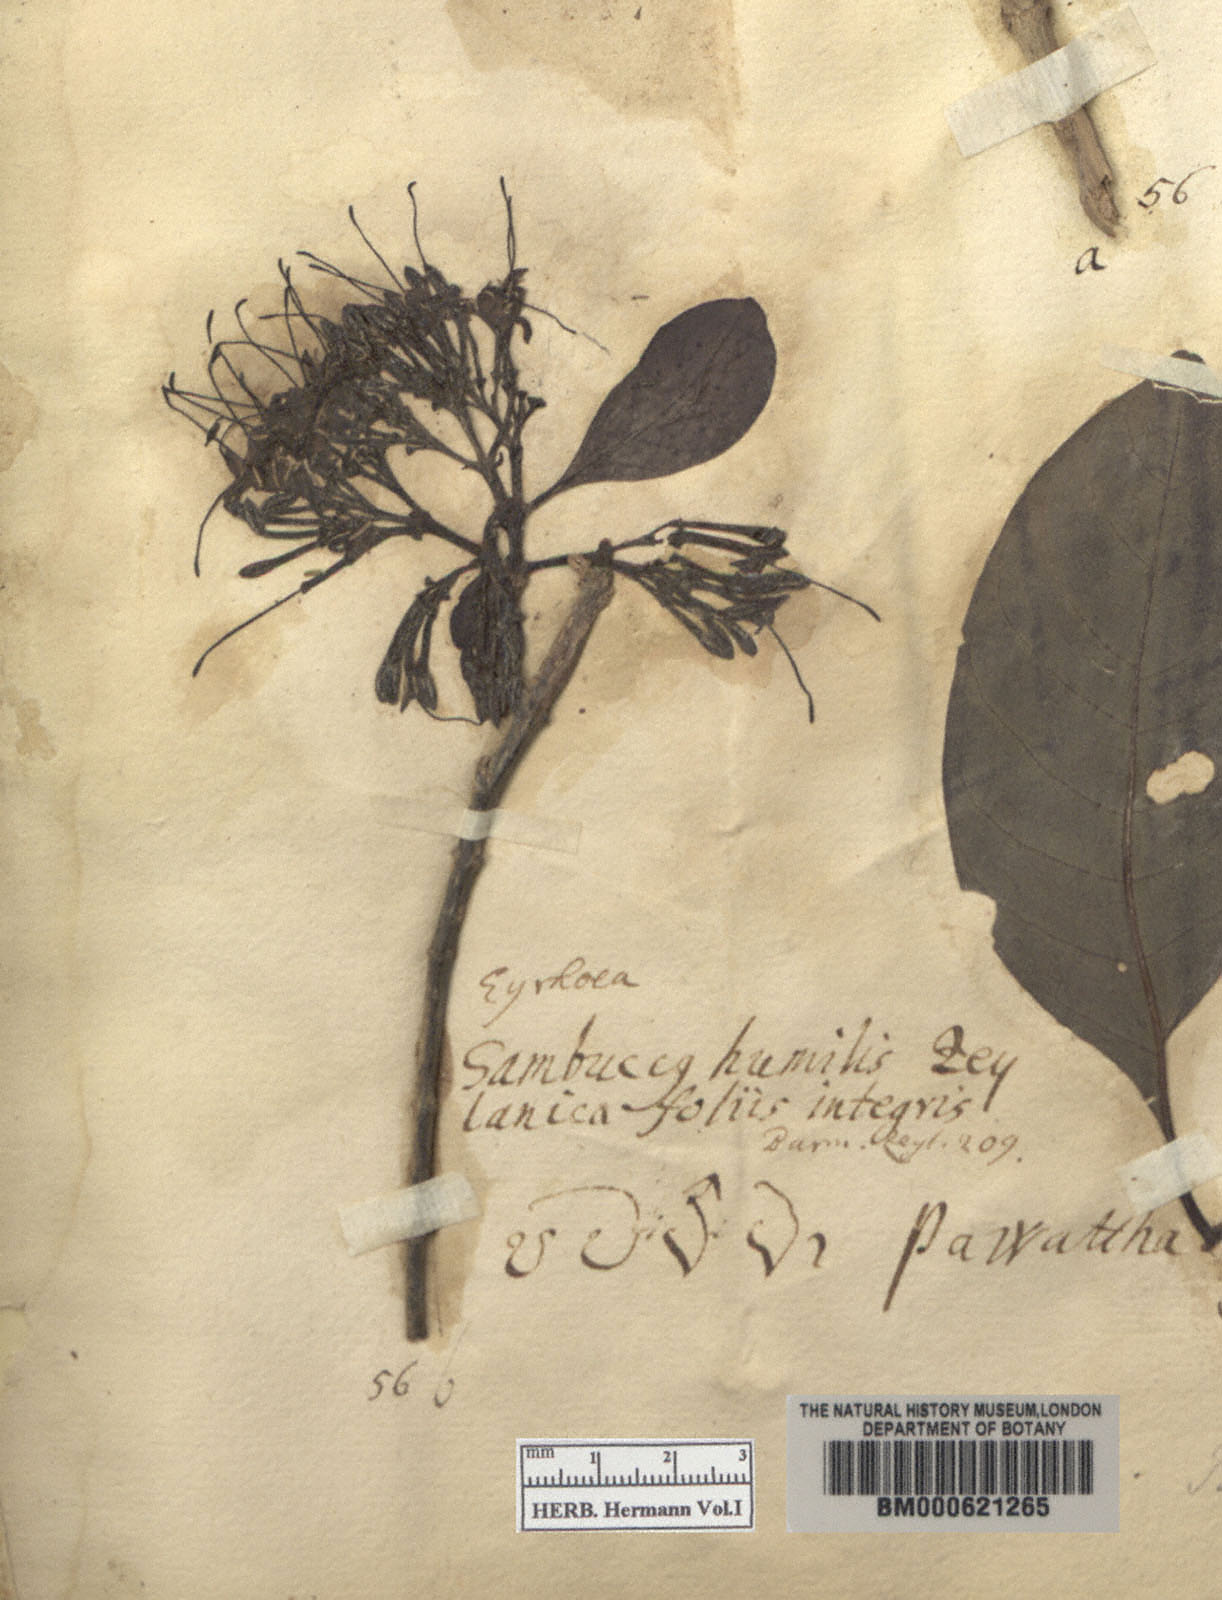 56
a
Sambucus humilis Zey
lanica foliis integris
Burm. Zeyl. 209.
Pawattha
56 b
mm 1 2 3
HERB. Hermann Vol.I
THE NATURAL HISTORY MUSEUM,LONDON
DEPARTMENT OF BOTANY
BM000621265